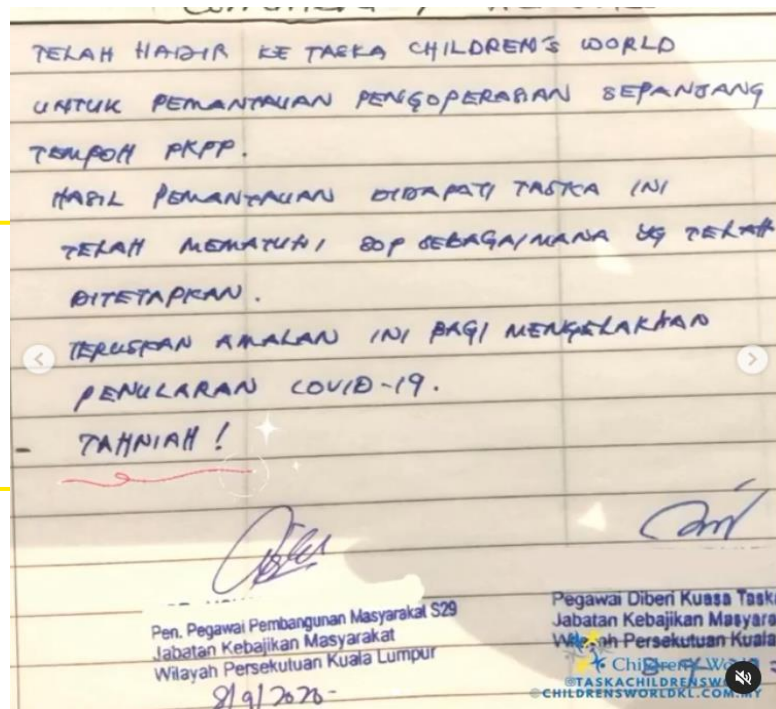 TELAH HADIR KE TASKA CHILDREN'S WORLD
UNTUK PEMANTAUAN PENGOPERASIAN SEPANJANG
TEMPOH PKPP.
HASIL PEMANTAUAN DIDAPATI TASKA INI
TELAH MEMATUHI SOP SEBAGAIMANA YG TELAH
DITETAPKAN.
TERUSKAN AMALAN INI BAGI MENGELAKKAN
PENULARAN COVID-19.
TAHNIAH!
Pen. Pegawai Pembangunan Masyarakat S29
Jabatan Kebajikan Masyarakat
Wilayah Persekutuan Kuala Lumpur
8/9/2020-
Pegawai Diberi Kuasa Task
Jabatan Kebajikan Masyara
Persekutuan Kuala
Children's Wo
@TASKACHILDRENSW
©CHILDRENSWORLDKL.COM.MY